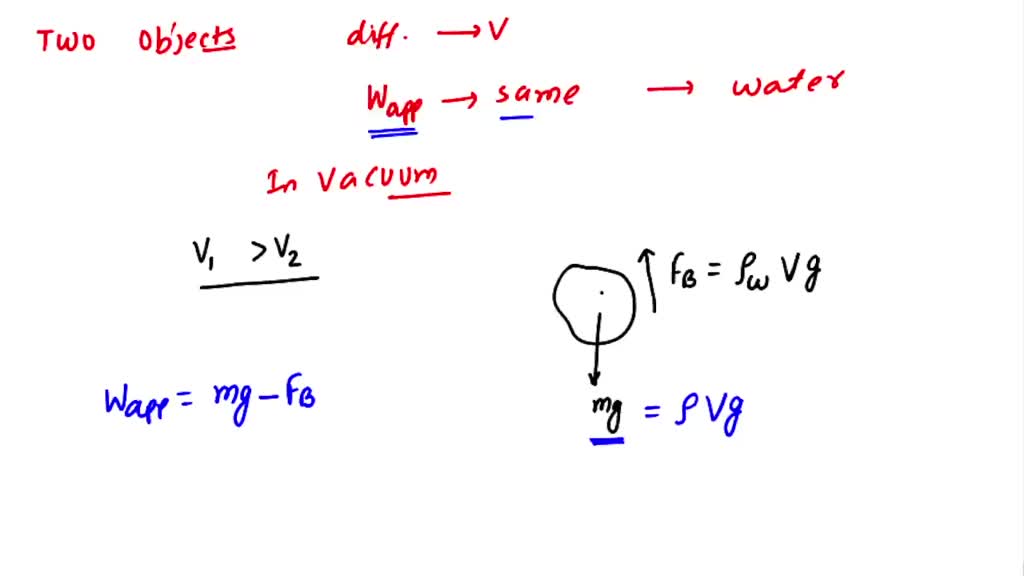 Two Objects diff. → V
Wapp → same → water
In Vacuum
V1 > V2
FB = ρw Vg
Wapp = mg - FB
mg = ρVg